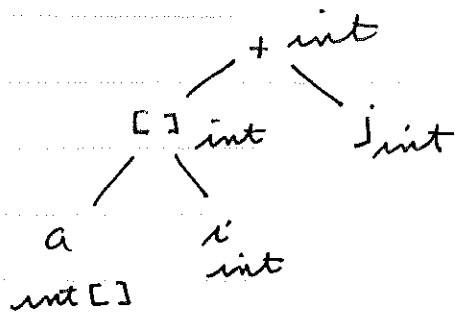 + int
[ ] int j int
a i
int [ ] int